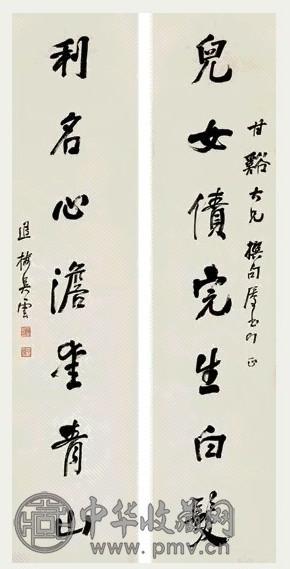 甘谿大兄撰句屬書即正
兒女債完生白髮
利名心澹坐青山
退樓吳雲
中华收藏网
www.pmv.cn